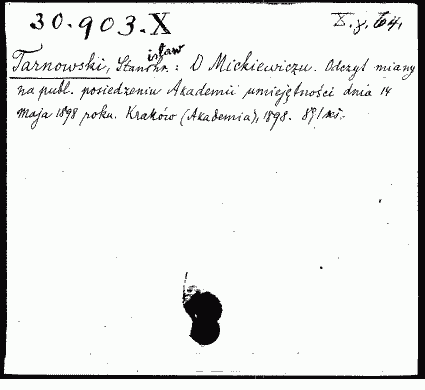 30.903.X X. y. 64.
Tarnowski, Stanisław: O Mickiewiczu. Odczyt miany
na publ. posiedzeniu Akademii umiejętności dnia 14
maja 1898 roku. Kraków (Akademia), 1898. 8º